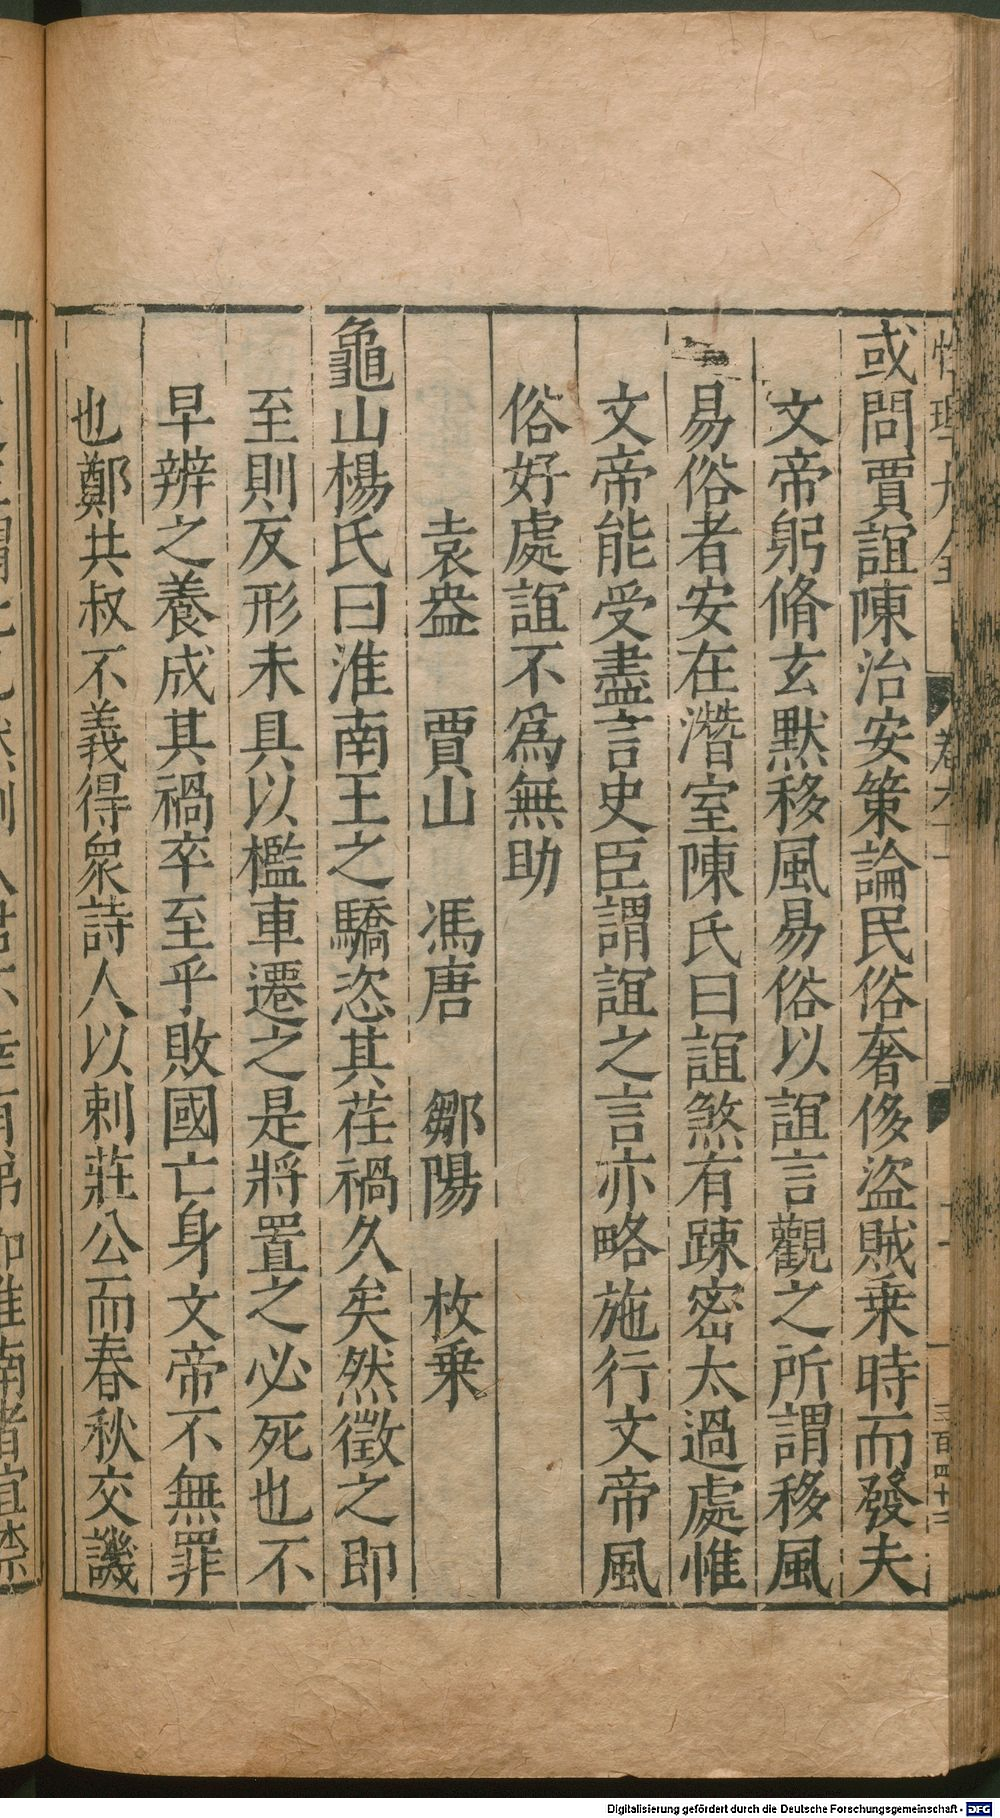 或問賈誼陳治安策論民俗奢侈盜賊乗時而發夫
文帝躬脩玄黙移風易俗以誼言觀之所謂移風
易俗者安在濳室陳氏曰誼煞有踈宻太過處惟
文帝能受盡言史臣謂誼之言亦略施行文帝風
俗好處誼不爲無助
袁盎 賈山 馮唐 鄒陽 枚乗
龜山楊氏曰淮南王之驕恣其荏禍久矣然徵之即
至則反形未具以檻車遷之是將置之必死也不
早辨之養成其禍卒至乎敗國亡身文帝不無罪
也鄭共叔不義得衆詩人以刺莊公而春秋交譏
Digitalisierung gefördert durch die Deutsche Forschungsgemeinschaft - DFG